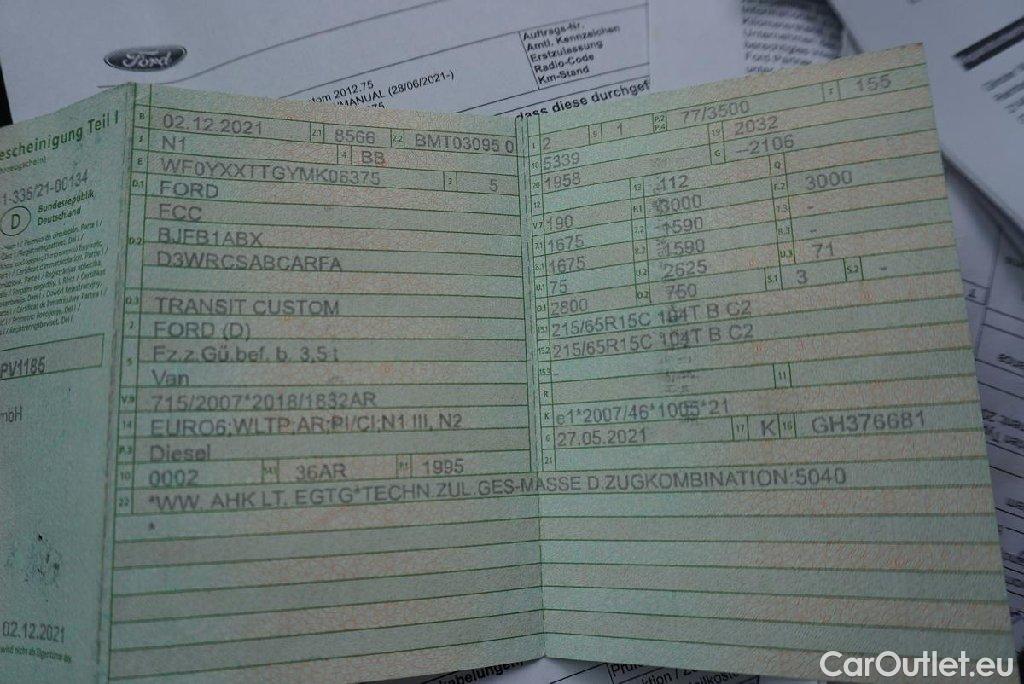 Ford
2012.75
MANUAL (28/06/2021-)
Auftrags-Nr.
Amtl. Kennzeichen
Erstzulassung
Radio-Code
Km-Stand
dass diese durchgef
escheinigung Teil I
1-336/21-00134
D
Bundesrepublik
Deutschland
PV1185
mbH
02.12.2021
B 02.12.2021 2.1 8566 2.2 BMT03095 0
J N1 4 BB
E WF0YXXTTGYMK06375 3 5
D.1 FORD
FCC
D.2 BJFB1ABX
D3WRCSABCARFA
D.3 TRANSIT CUSTOM
2 FORD (D)
5 Fz.z.Gü.bef. b. 3,5 t
Van
V.9 715/2007*2018/1832AR
14 EURO6;WLTP;AR;PI/CI;N1 III, N2
P.3 Diesel
10 0002 14.1 36AR P.1 1995
22 *WW. AHK LT. EGTG*TECHN.ZUL.GES-MASSE D.ZUGKOMBINATION:5040
*
L 2 9 1 P.2 P.4 77/3500 T 155
18 5339 19 2032
20 1958 G -2106
12 13 112 Q
V.7 190 F.1 3000 F.2 3000
7.1 1675 7.2 1590 7.3 -
8.1 1675 8.2 1590 8.3 -
U.1 75 U.2 2625 U.3 71
O.1 2800 O.2 750 S.1 3 S.2 -
15.1 215/65R15C 104T B C2
15.2 215/65R15C 104T B C2
15.3
R 11
K e1*2007/46*1005*21
6 27.05.2021 17 K 16 GH376681
21
CarOutlet.eu